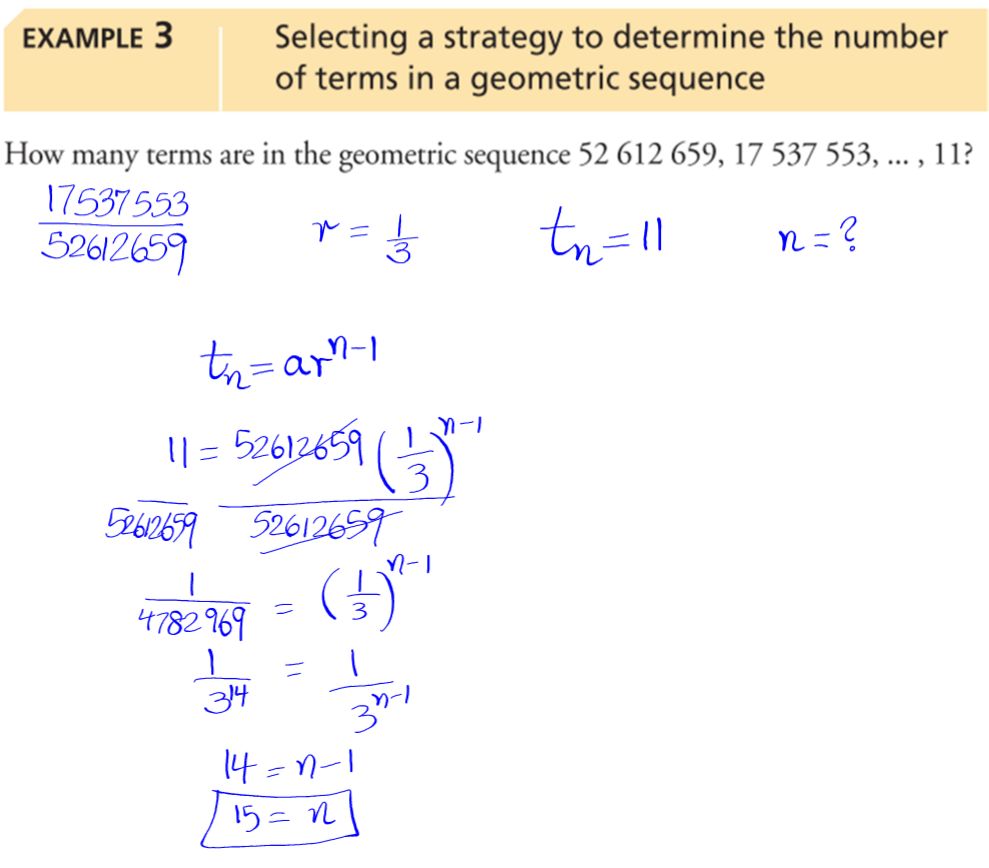 EXAMPLE 3
Selecting a strategy to determine the number
of terms in a geometric sequence
How many terms are in the geometric sequence 52 612 659, 17 537 553, ... , 11?
17537553/52612659 r = 1/3 tₙ = 11 n = ?
tₙ = arⁿ⁻¹
11/52612659 = 52612659(1/3)ⁿ⁻¹/52612659
1/4782969 = (1/3)ⁿ⁻¹
1/3¹⁴ = 1/3ⁿ⁻¹
14 = n-1
15 = n